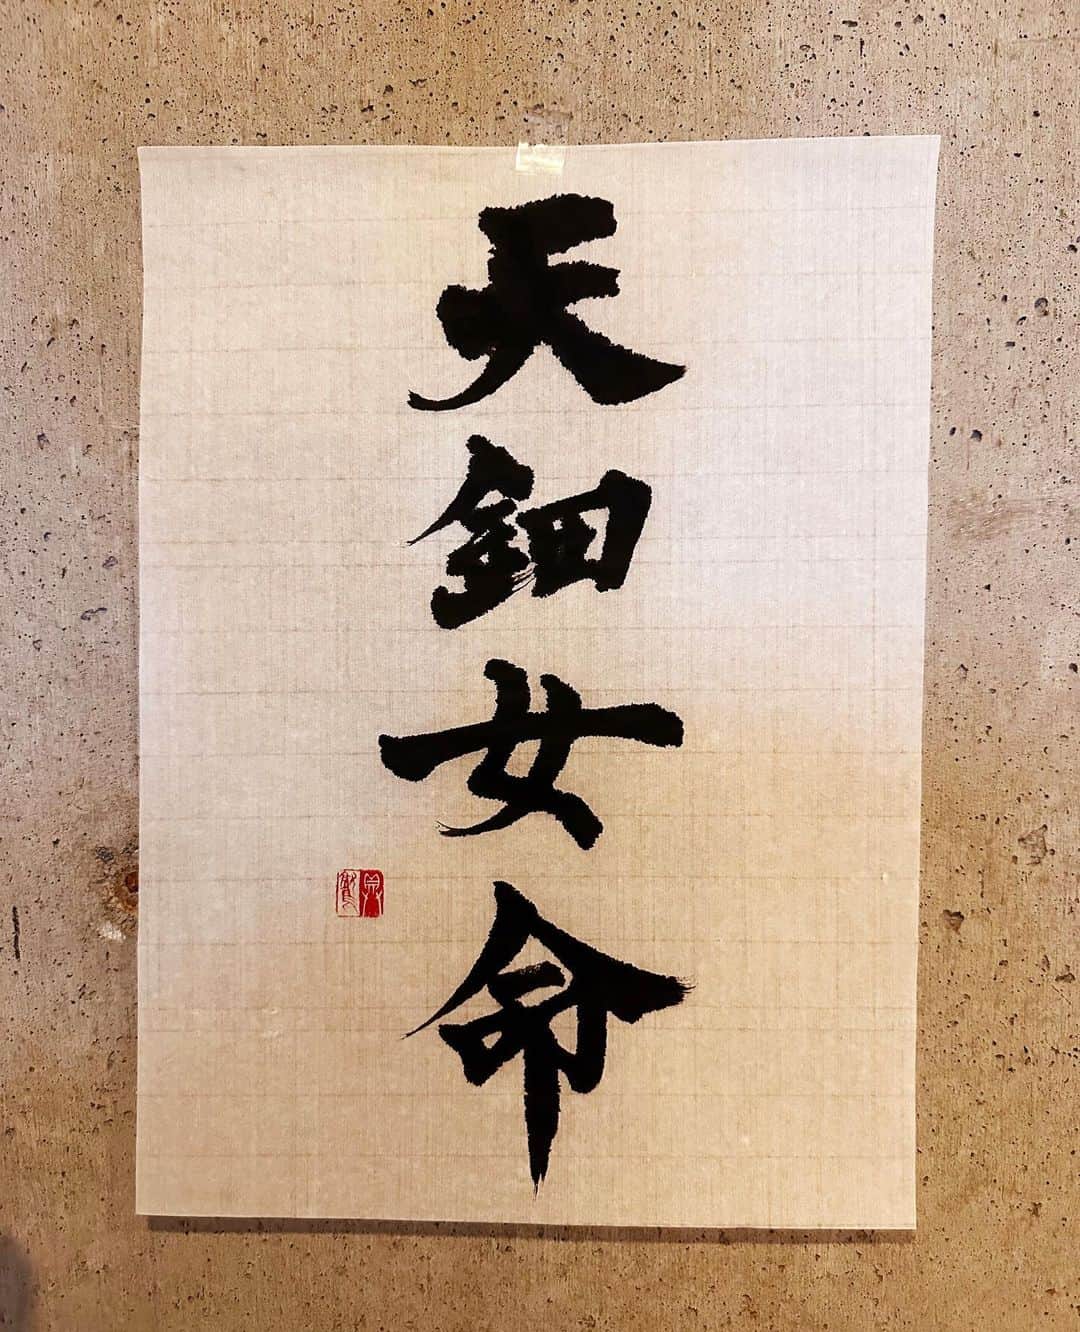 天鈿女命